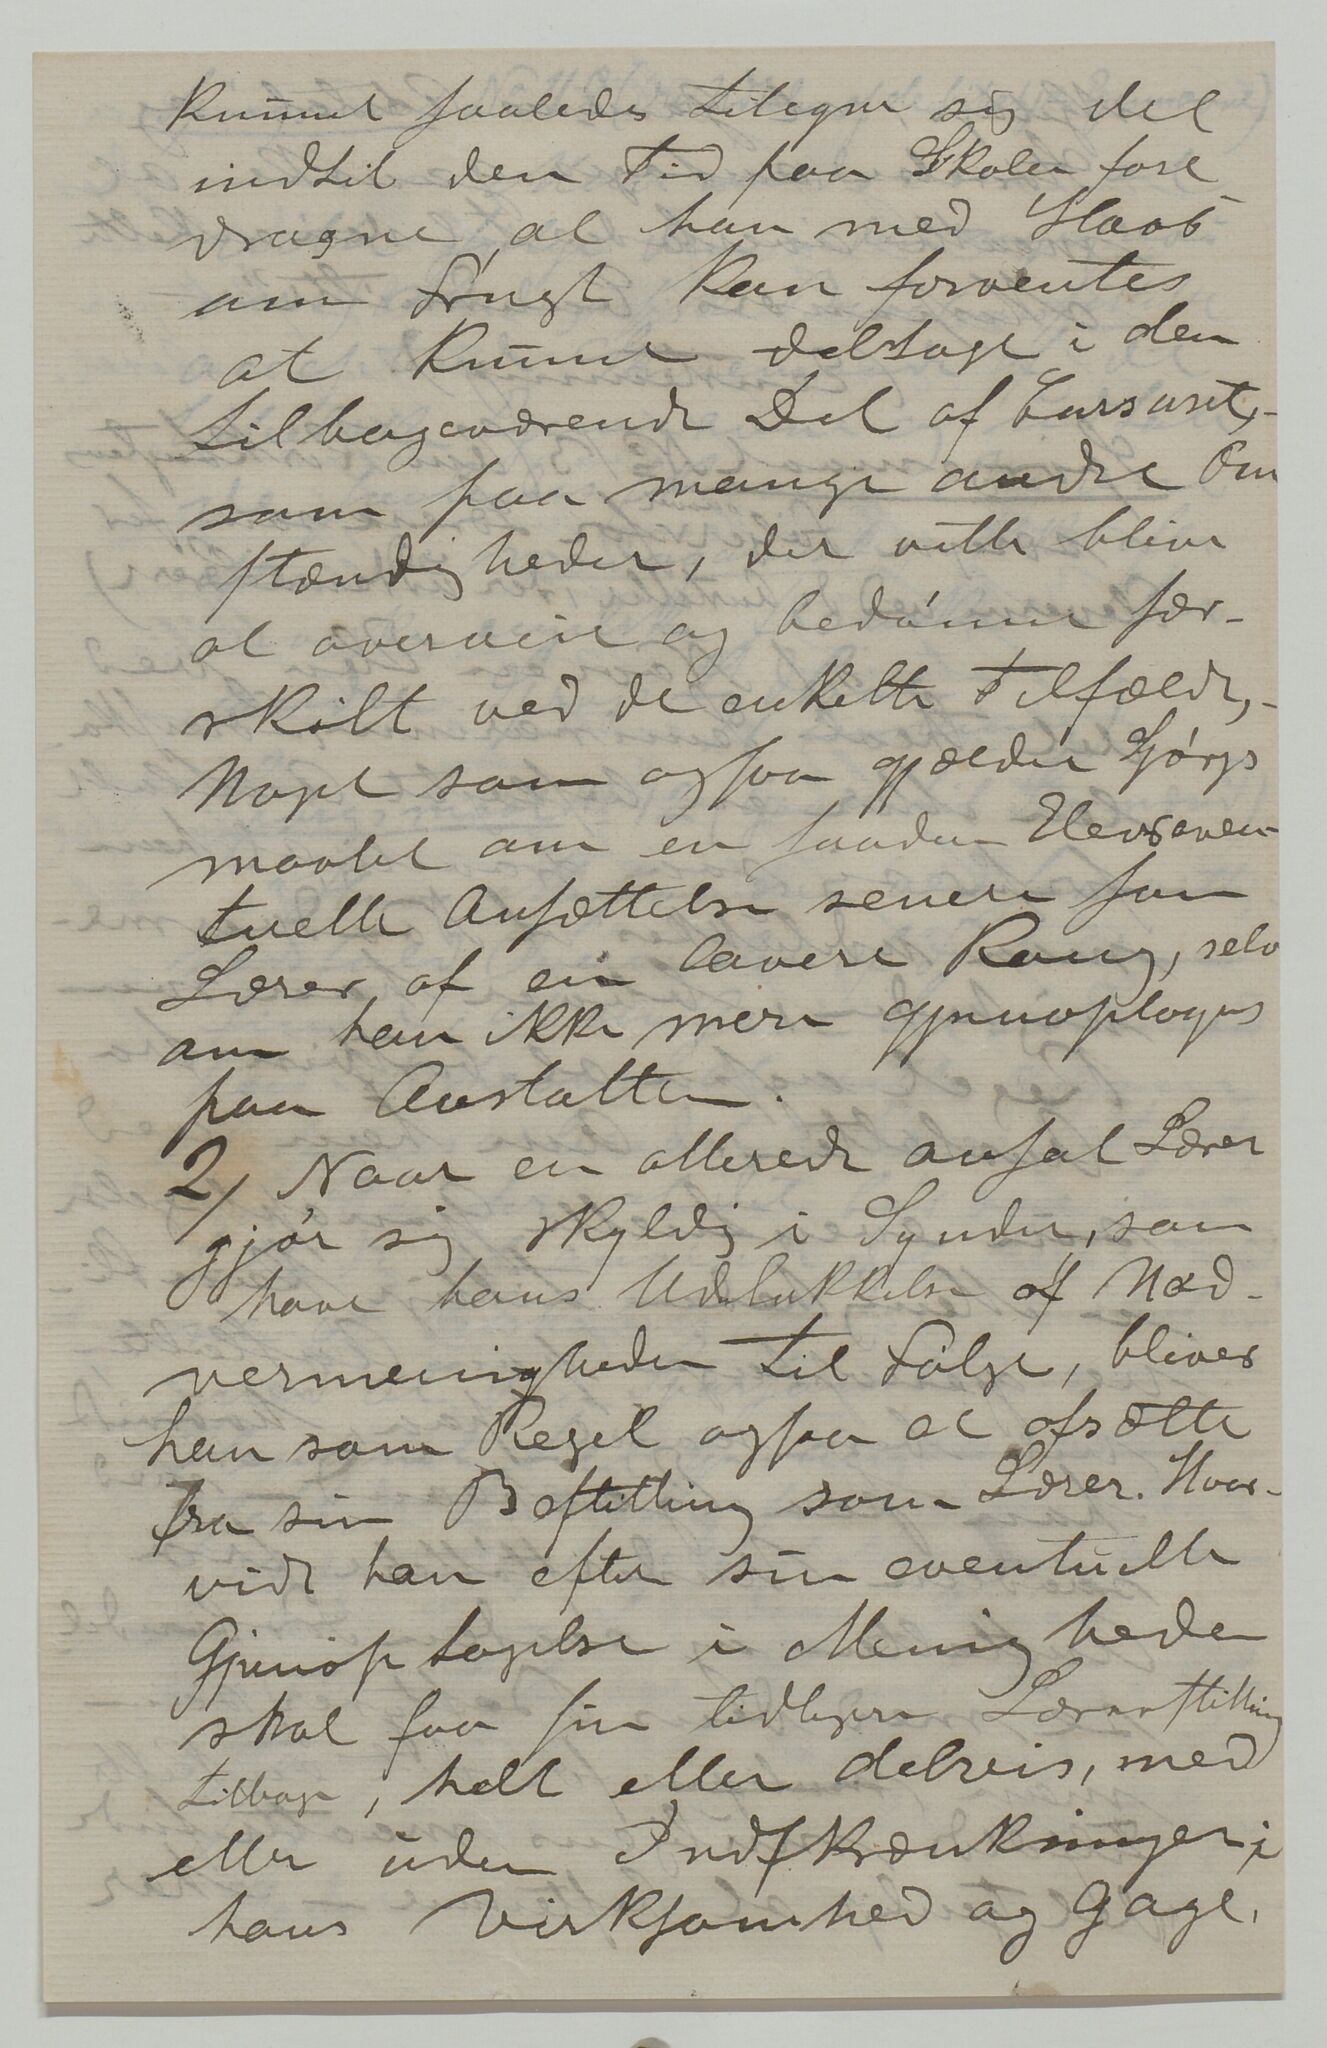 kunnet saaledes tilegne sig det
indtil den Tid paa Skolen fore
dragne, at han med Haab
om Frugt kan forventes
at kunne deltage i den
tilbageværende Del af Cursuset,-
som paa mange andre Om
stændigheder, der ville blive
at overveie og bedømme for-
skilt ved de enkelte Tilfælde,-
Noget som ogsaa gjælder Spørgs
maalet om en saadan Elevs even-
tuelle Ansættelse senere som
Lærer, af en lavere Rang, selv
om han ikke mere gjenoptages
paa Anstalten.
2/ Naar en allerede ansat Lærer
gjør sig skyldig i Synder, som
have hans Udelukkelse af Nad-
vermenigheden til Følge, bliver
han som Regel ogsaa at afsætte
fra sin Bestilling som Lærer. Hvor-
vidt han efter sin eventuelle
Gjenoptagelse i Menigheden
skal faa sin tidligere Lærerstilling
tilbage, helt eller delveis, med
eller uden Indskrænkninger i
hans Virksomhed og Gage,